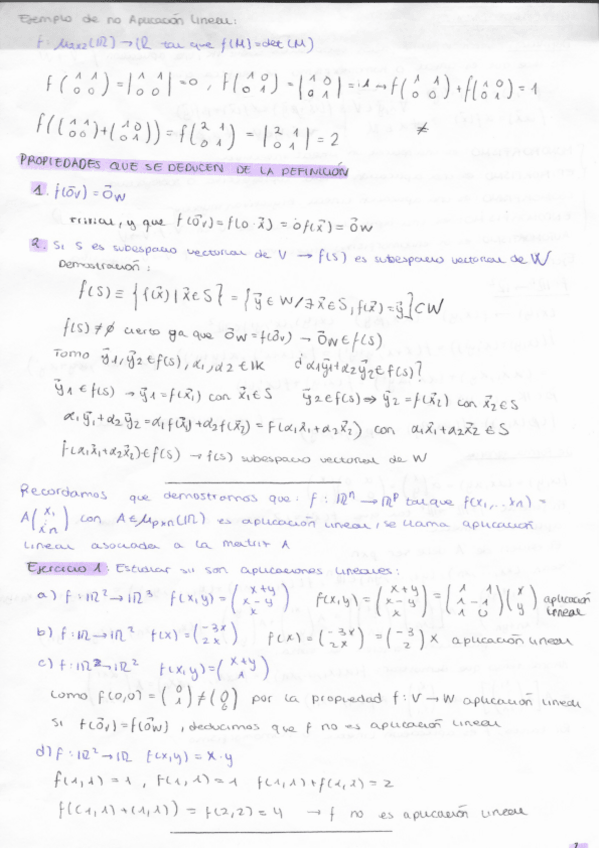 Ejemplo de no Aplicación Lineal:
f: M₂ₓ₂(ℝ) → ℝ tal que f(M) = det(M)
f(1 1 / 0 0) = |1 1 / 0 0| = 0 , f(1 0 / 0 1) = |1 0 / 0 1| = 1 → f(1 1 / 0 0) + f(1 0 / 0 1) = 1
f((1 1 / 0 0) + (1 0 / 0 1)) = f(2 1 / 0 1) = |2 1 / 0 1| = 2 ≠
PROPIEDADES QUE SE DEDUCEN DE LA DEFINICIÓN
1. f(0⃗v) = 0⃗w
trivial, y que f(0⃗v) = f(0·x⃗) = 0f(x⃗) = 0⃗w
2. Si S es subespacio vectorial de V → f(S) es subespacio vectorial de W
Demostración:
f(S) ≡ {f(x⃗) | x⃗ ∈ S} = {y⃗ ∈ W / ∃ x⃗ ∈ S, f(x⃗) = y⃗} ⊂ W
f(S) ≠ ∅ cierto ya que 0⃗w = f(0⃗v) → 0⃗w ∈ f(S)
Tomo y⃗1, y⃗2 ∈ f(S), α1, α2 ∈ IK ¿α1y⃗1 + α2y⃗2 ∈ f(S)?
y⃗1 ∈ f(S) → y⃗1 = f(x⃗1) con x⃗1 ∈ S y⃗2 ∈ f(S) ⇒ y⃗2 = f(x⃗2) con x⃗2 ∈ S
α1y⃗1 + α2y⃗2 = α1f(x⃗1) + α2f(x⃗2) = f(α1x⃗1 + α2x⃗2) con α1x⃗1 + α2x⃗2 ∈ S
f(α1x⃗1 + α2x⃗2) ∈ f(S) → f(S) subespacio vectorial de W
Recordamos que demostramos que: f: ℝⁿ → ℝᵖ tal que f(x1,...xn) =
A(x1 ⋮ xn) con A ∈ Mpxn(ℝ) es aplicación lineal, se llama aplicación
lineal asociada a la matriz A
Ejercicio 1: Estudiar si son aplicaciones lineales:
a) f: ℝ² → ℝ³ f(x,y) = (x+y / x-y / x) f(x,y) = (x+y / x-y / x) = (1 1 / 1 -1 / 1 0)(x / y) aplicación lineal
b) f: ℝ → ℝ² f(x) = (-3x / 2x) f(x) = (-3x / 2x) = (-3 / 2) x aplicación lineal
c) f: ℝ² → ℝ² f(x,y) = (x+y / 1)
como f(0,0) = (0 / 1) ≠ (0 / 0) por la propiedad f: V → W aplicación lineal
si f(0⃗v) = f(0⃗w), deducimos que f no es aplicación lineal
d) f: ℝ² → ℝ f(x,y) = x·y
f(1,1) = 1 , f(1,1) = 1 f(1,1) + f(1,1) = 2
f((1,1) + (1,1)) = f(2,2) = 4 → f no es aplicación lineal